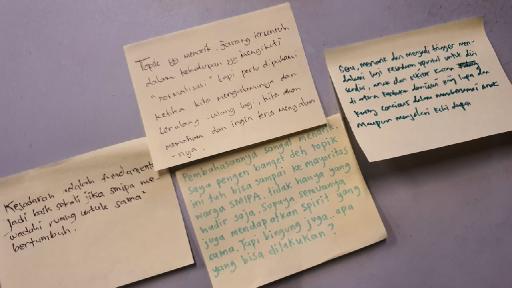 Topik yg menarik. Jarang tersentuh
dalam kehidupan yg mengikuti
"normalisasi" tapi perlu dipahami
ketika kita mengalaminya dan
berulang-ulang lagi, kita akan
memahami dan ingin terus mengalami
-nya.
Seru, menarik dan menjadi trigger men-
dalami lagi kesadaran spiritual untuk diri
sendiri, anak dan sekitar karena
di antara
kurang conscious dalam membersamai anak
maupun menjalani
Kesadaran adalah fundamental
Jadi baik sekali jika smipa me-
wadahi ruang untuk sama"
bertumbuh.
Pembahasannya sangat menarik.
Saya pengen banget deh topik
ini tuh bisa sampai ke mayoritas
warga SMIPA, tidak hanya yang
hadir saja. Supaya semuanya
juga mendapatkan spirit yang
sama. Tapi bingung juga, apa
yang bisa dilakukan?